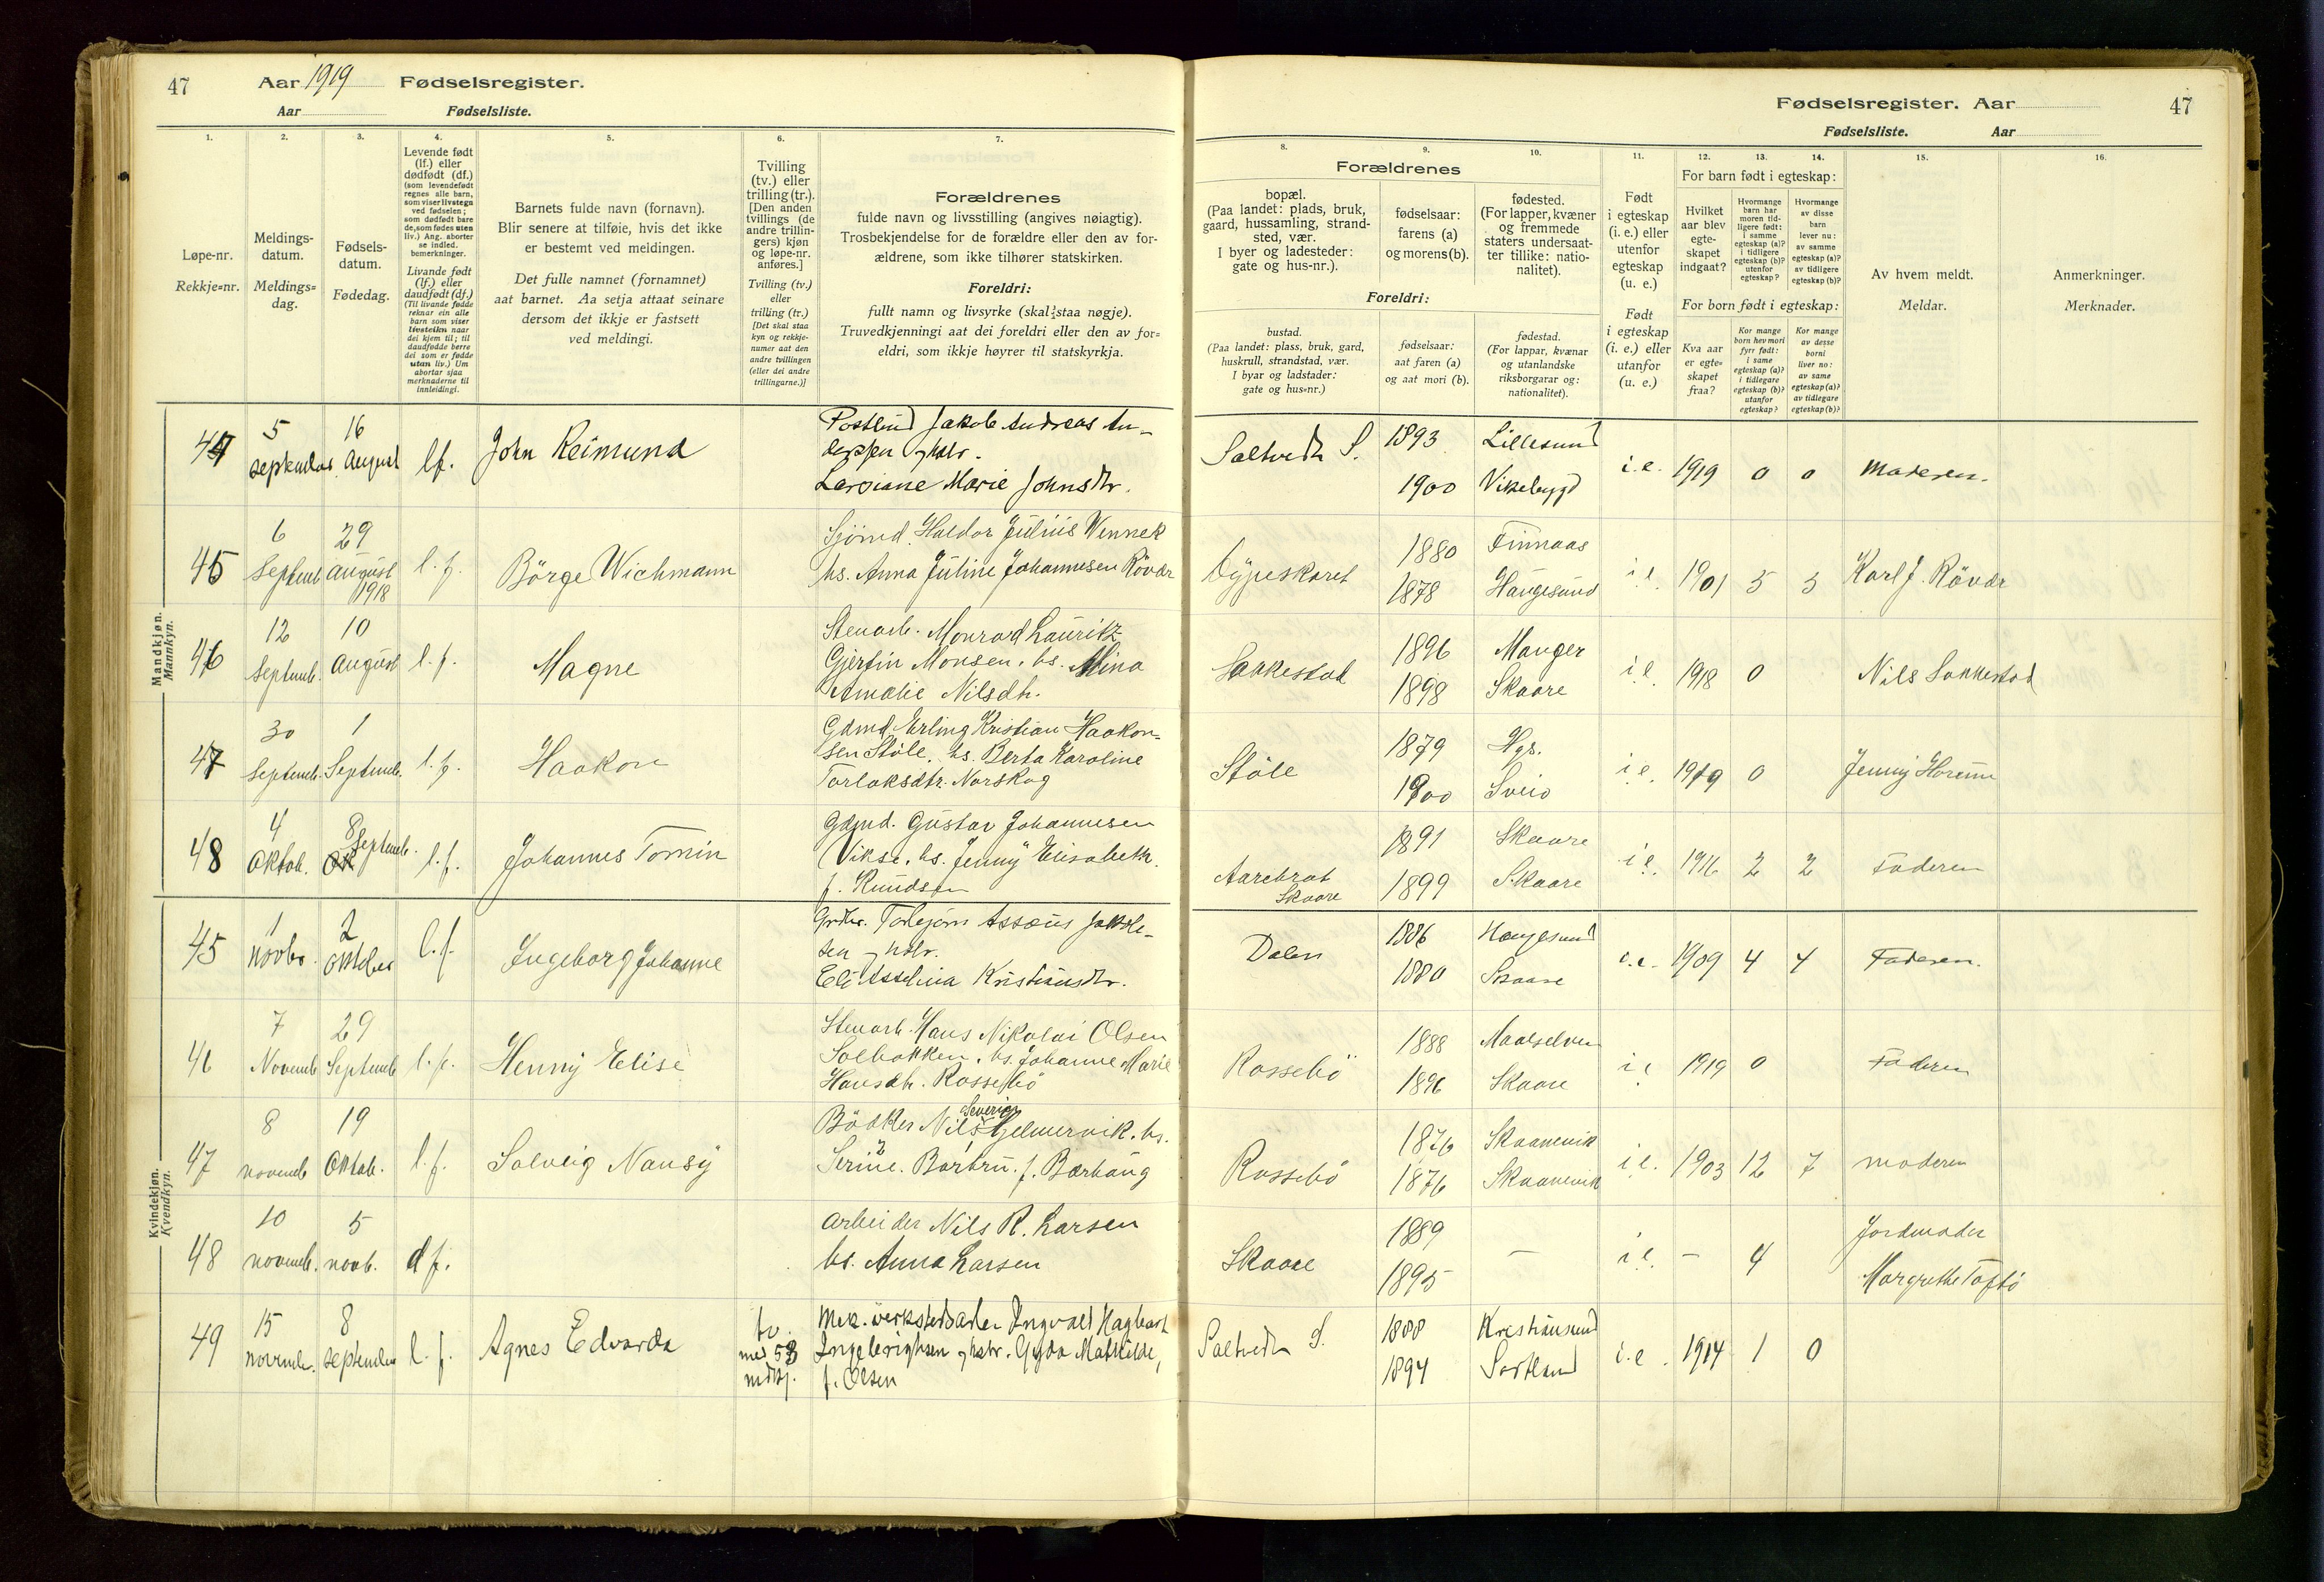 47 Aar 1919 Fødselsregister.
Aar Fødselsliste.
Fødselsregister. Aar 47
Fødselsliste. Aar
1. 2. 3. 4. 5. 6. 7.
Løpe-nr.
Rekkje=nr.
Meldings-
datum.
Meldings=
dag.
Fødsels-
datum.
Fødedag.
Levende født
(lf.) eller
dødfødt (df.)
(som levendefødt
regnes alle barn,
som viser livstegn
ved fødselen;
som dødfødt bare
de, som fødes uten
liv.) Ang. aborter
se indled.
bemerkninger.
Livande født
(lf.) eller
daudfødt (df.)
(Til livande fødde
reknar ein alle
barn som viser
livsteikn naar
dei kjem til; til
daudfødde berre
dei som er fødde
utan liv.) Um
abortar sjaa
merknaderne til
innleidingi.
Barnets fulde navn (fornavn).
Blir senere at tilføie, hvis det ikke
er bestemt ved meldingen.
Det fulle namnet (fornamnet)
aat barnet. Aa setja attaat seinare
dersom det ikkje er fastsett
ved meldingi.
Tvilling
(tv.) eller
trilling (tr.).
[Den anden
tvillings (de
andre trillin-
gers) kjøn
og løpe-nr.
anføres.]
Tvilling (tv.)
eller
trilling (tr.)
[Det skal staa
kyn og rekkje-
numer aat den
andre tvillingen
(eller dei andre
trillingarne.)]
Forældrenes
fulde navn og livsstilling (angives nøiagtig).
Trosbekjendelse for de forældre eller den av for-
ældrene, som ikke tilhører statskirken.
Foreldri:
fullt namn og livsyrke (skal staa nøgje).
Truvedkjenningi aat dei foreldri eller den av for=
eldri, som ikkje høyrer til statskyrkja.
8. 9. 10. 11. 12. 13. 14. 15. 16.
Forældrenes
bopæl.
(Paa landet: plads, bruk,
gaard, hussamling, strand-
sted, vær.
I byer og ladesteder:
gate og hus-nr.).
fødselsaar:
farens (a)
og morens (b).
fødested.
(For lapper, kvæner
og fremmede
staters undersaat-
ter tillike: natio-
nalitet).
Foreldri:
bustad.
(Paa landet: plass, bruk, gard,
huskrull, strandstad, vær.
I byar og ladstader:
gate og hus=nr.)
fødselsaar:
aat faren (a)
og aat mori (b).
fødestad.
(For lappar, kvænar
og utanlandske
riksborgarar og:
nationalitet).
Født
i egteskap
(i. e.) eller
utenfor
egteskap
(u. e.)
Født
i egteskap
(i. e.) eller
utanfor
(u. e.)
For barn født i egteskap:
Hvilket
aar blev
egte-
skapet
indgaat?
Hvormange
barn har
moren tid-
ligere født:
i samme
egteskap (a)?
i tidligere
egteskap (b)?
utenfor
egteskap?
Hvormange
av disse
barn
lever nu:
av samme
egteskap (a)?
av tidligere
egteskap (b)?
For born født i egteskap:
Kva aar
er egte=
skapet
fraa?
Kor mange
born hev mori
fyrr født:
i same
egteskap (a)?
i tidlegare
egteskap (b)?
utanfor
egteskap?
Kor mange
av desse
borni
liver no:
av same
egteskap (a)?
av tidlegare
egteskap (b)?
Av hvem meldt.
Meldar.
Anmerkninger.
Merknader.
Mandkjøn.
Mannkyn.
44 5 september 16 August lf. John Reimund
Postbud Jakob Andreas An-
derssen og hstr.
Larsiane Marie Johnsdtr.
Saltveit S. 1893 1900 Lillesund Vikebygd i.e. 1919 0 0 Moderen.
45 6 Septemb 29 August 1918 l.f. Börge Wichmann
Sjömd. Haldor Julius Wennek
hs. Anna Juline Johannesen Rövær
Dypeskaret 1880 1878 Finnaas Haugesund i.e. 1901 5 5 Karl J. Rövær
46 12 Septemb. 10 August l.f. Magne
Stenarb. Monrad Lauritz
Gjertin Monsen. hs. Mina
Amalie Nilsdtr.
Sakkestad 1896 1898 Manger Skaare i.e. 1918 0 Nils Sakkestad
47 30 Septemb. 1 Septemb. l.f. Haakon
Gdmd. Erling Kristian Haakon-
sen Stöle. hs. Berta Karoline
Torlaksdtr. Norskog
Stöle 1879 1900 Hgs. Sveio i.e. 1919 0 Jenny
48 4 Oktob. 8 Septemb. l.f. Johannes Tormin
Gdmd. Gustav Johannesen
Vikse. hs. Jenny Elisabeth.
f. Knudsen
Aarebrot
Skaare 1891 1899 Skaare Skaare i.e. 1916 2 2 Faderen
Kvindekjøn.
Kvendkyn.
45 1 novbr. 2 Oktober l.f. Ingeborg Johanne
Torbjörn Asseus Jakob-
sen og hstr.
Eli Asselina Kristiansdtr.
Dalen 1886 1880 Haugesund Skaare i.e. 1909 4 4 Faderen.
46 7 Novemb 29 Septemb l.f. Henny Elise
Stenarb. Hans Nikolai Olsen
Solbakken. hs. Johanne Marie
Hansdtr. Rossebö
Rossebö 1888 1896 Maalselven Skaare i.e. 1919 0 Faderen
47 8 novemb 19 Oktob. l.f. Solveig Nansy
Bödker Nils Severin Hjelmervik. hs.
Serine Barbru. f. Barhaug
Rossebö 1876 1876 Skaanevik Skaanevik i.e. 1903 12 7 moderen
48 10 novemb. 5 novb. d f.
Arbeider Nils R. Larsen
hs. Anna Larsen
Skaare 1889 1895 — i.e. — 4 Jordmoder
Margrethe Toftö
49 15 november. 8 september l.f. Agnes Edvarda tv.
med 53
mdkj.
Mek. verkstedsarb. Ingvald Hagbart
Ingebrigtsen og hstr. Gyda Mathilde,
f. Olsen
Saltveit S. 1888 1894 Kristiansund Sortland i.e. 1914 1 0